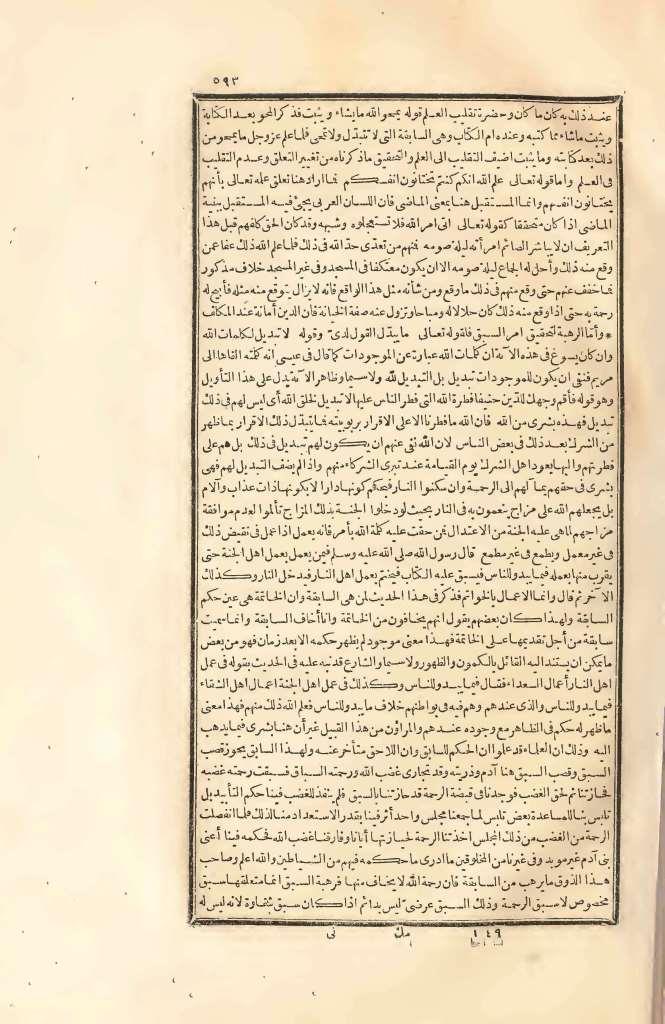 ٥٩٣
عند ذلك به كان ما كان وحضرة تقليب العلم قوله يمحو الله ما يشاء ويثبت فذكر المحو بعد الكتابة
ويثبت ماشاء مما كتبه وعنده ام الكتاب وهي السابقة التي لا تتبدل ولا تمحى فلما علم عز وجل ما يمحو من
ذلك بعد كتابته وما يثبت اضيف التقليب الى العلم والتحقيق ماذكرناه من تغيير التعلق وعدم التقليب
فى العلم واما قوله تعالى علم الله انكم كنتم تختانون انفسكم فما أراد هنا تعلق علمه تعالى بأنهم
يختانون انفسهم وانما المستقبل هنا بمعنى الماضى فان اللسان العربى يجيئ فيه المستقبل ببنية
الماضى اذا كان متحققا كقوله تعالى اتى امر الله فلا تستعجلوه وشبهه وقد كان الحق كلفهم قبل هذا
التعريف ان لا يباشر الصائم امرأته ليلة صومه فمنهم من تعدّى حدّ الله فى ذلك فلما علم الله ذلك عفا عمن
وقع منه ذلك وأحل له الجماع ليلة صومه الا ان يكون معتكفا فى المسجد وفى غير المسجد خلاف مذكور
فما خفف عنهم حتى وقع منهم فى ذلك ما وقع ومن شأنه مثل هذا الواقع فانه لا يزال يتوقع منه مثله فأبيح له
رحمة به حتى اذا وقع منه ذلك كان حلالا له ومباحا وتزول عنه صفة الخيانة فان الدين أمانة عند المكلف
* وأمّا الرهبة لتحقيق امر السبق فلقوله تعالى ما يبدّل القول لدىّ وقوله لا تبديل لكلمات الله
وان كان يسوغ فى هذه الآية ان كلمات الله عبارة عن الموجودات كما قال فى عيسى انه كلمته القاها الى
مريم فنفى ان يكون للموجودات تبديل بل التبديل لله ولا سيما وظاهر الآية يدل على هذا التأويل
وهو قوله فأقم وجهك للدين حنيفا فطرة الله التى فطر الناس عليها لا تبديل لخلق الله أى ليس لهم فى ذلك
تبديل فهذه بشرى من الله فان الله ما فطرنا الا على الاقرار بربوبيته فما يتبدّل ذلك الاقرار بما ظهر
من الشرك بعد ذلك فى بعض الناس لان الله نفى عنهم ان يكون لهم تبديل فى ذلك بل هم على
فطرتهم واليها يعود اهل الشرك يوم القيامة عند تبرى الشركاء منهم واذ الم يضف التبديل لهم فهى
بشرى فى حقهم بما آلهم الى الرحمة وان سكنوا النار فبحكم كونها دارا لا بكونها ذات عذاب وآلام
بل يجعلهم الله على مزاج ينعمون به فى النار بحيث لو دخلوا الجنة بذلك المزاج تألموا لعدم موافقة
مزاجهم لما هى عليه الجنة من الاعتدال فمن حقت عليه كلمة الله بأمر فانه يعمل اذا عمل فى نقيض ذلك
فى غير معمل ويطمع فى غير مطمع قال رسول الله صلى الله عليه وسلم فيمن يعمل بعمل اهل الجنة حتى
يقرب منها بعمله فيما يبدو للناس فيسبق عليه الكتاب فيختم بعمل اهل النار فيدخل النار وكذلك
الآخر ثم قال وانما الاعمال بالخواتم فذكر فى هذا الحديث لمن هى السابقة وان الخاتمة هى عين حكم
السابقة ولهذا كان بعضهم يقول انهم يخافون من الخاتمة وانا أخاف السابقة وانما سميت
سابقة من أجل تقدمها على الخاتمة فهذا معنى موجود لم يظهر حكمه الا بعد زمان فهو من بعض
ما يمكن ان يستند اليه القائل بالكمون والظهور ولا سيما والشارع قد نبه عليه فى الحديث بقوله فى عمل
اهل النار أعمال السعداء فقال فيما يبدو للناس وكذلك فى عمل اهل الجنة اعمال اهل الشقاء
فيما يبدو للناس والذى عندهم وهم فيه فى بواطنهم خلاف ما يبدو للناس فعلم الله ذلك منهم فهذا معنى
ما ظهر له حكم فى الظاهر مع وجوده عندهم والمراؤن من هذا القبيل غير أن هنا بشرى فيما يذهب
اليه وذلك ان العلماء قد علموا ان الحكم للسابق وان اللاحق متأخر عنه ولهذا السابق يحوز قصب
السبق وقصب السبق هنا آدم وذريته وقد تجارى غضب الله ورحمته السباق فسبقت رحمته غضبه
فحازتنا ثم لحق الغضب فوجدنا فى قبضة الرحمة قد حازتنا بالسبق فلم ينفذ للغضب فينا حكم التأبيد بل
تلبس بنا للمساعدة بعض تلبس لما جمعنا مجلس واحد أثر فينا بقدر الاستعداد منا لذلك فلما انفصلت
الرحمة من الغضب من ذلك المجلس اخذتنا الرحمة لحيازتها أيانا وفارقنا غضب الله فحكمه فينا أعنى
بنى آدم غير مؤبد وفى غيرنا من المخلوقين ما ادرى ما حكمه فيهم من الشياطين والله اعلم وصاحب
هذا الذوق ما يرهب من السابقة فان رحمة الله لا يخاف منها فرهبة السبق انما متعلقها سبق
مخصوص لا سبق الرحمة وذلك السبق عرضىّ ليس بدائم اذا كان سبق شقاوة لانه ليس له
١٤٩ مك نى